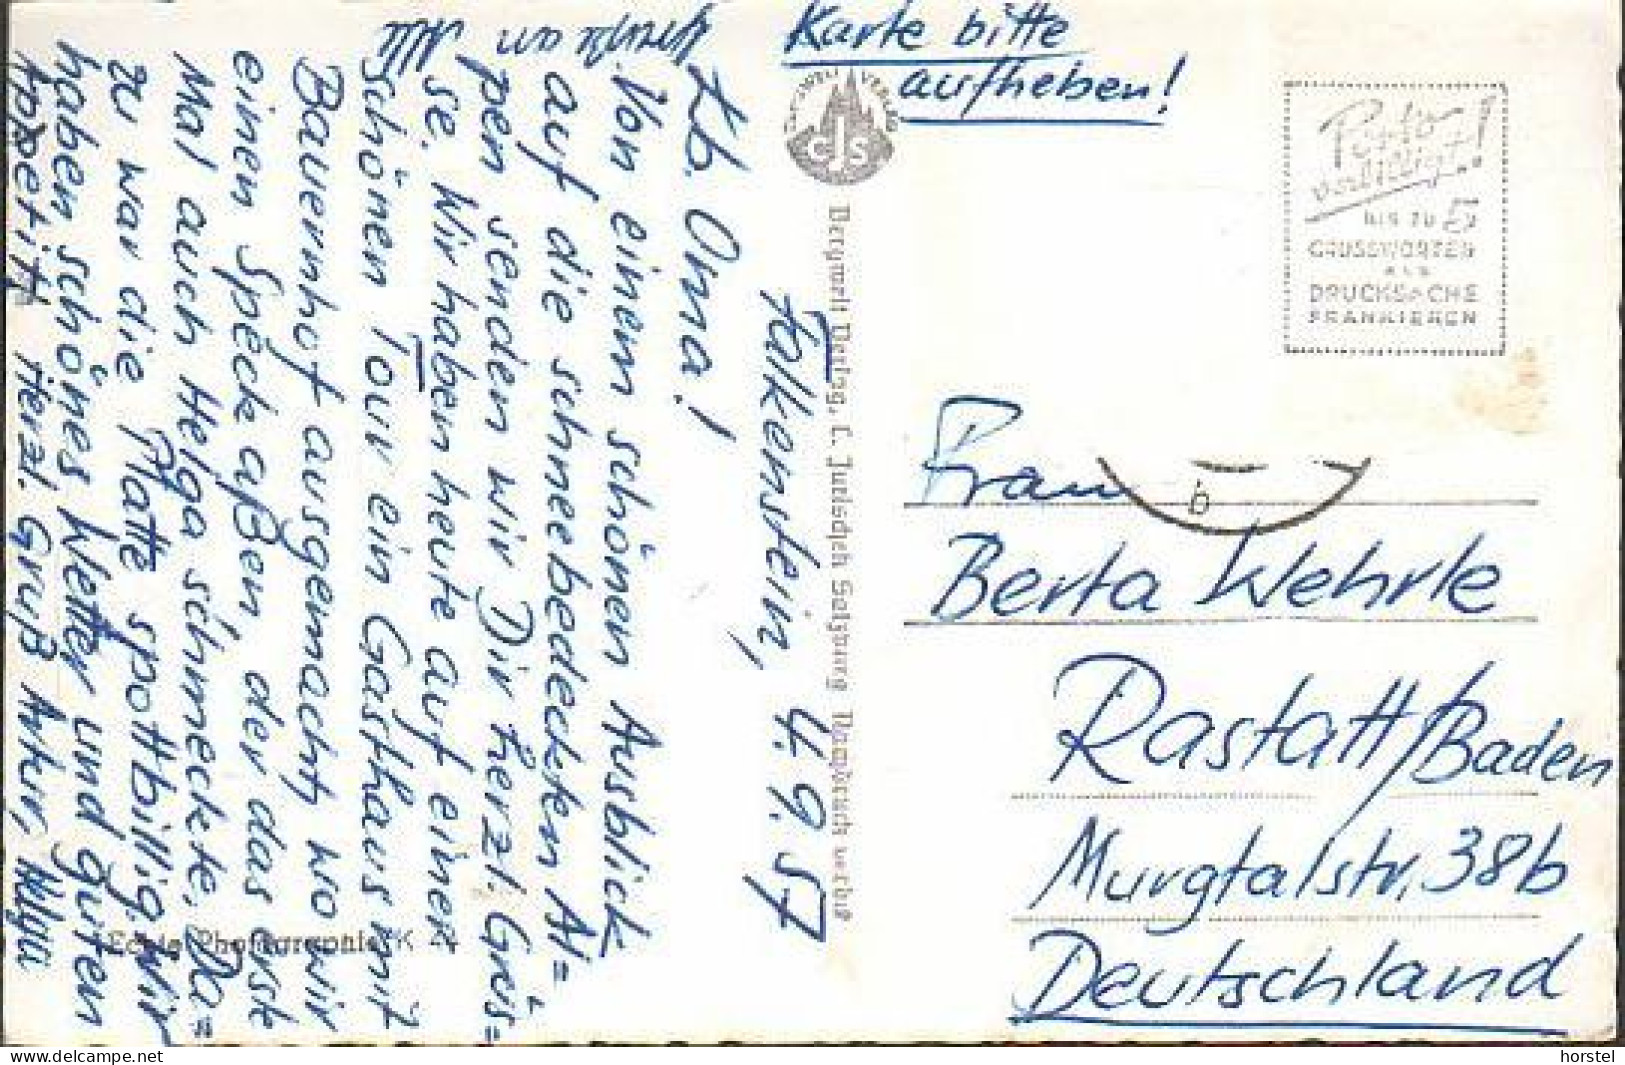 Karte bitte
aufheben!
BERGWELT VERLAG
CJS
Porto
verbilligt!
BIS ZU 5
GRUSSWORTEN
ALS
DRUCKSACHE
FRANKIEREN
Falkenstein, 4.9.57
Lb. Oma!
Von einem schönen Ausblick
auf die schneebedeckten Al=
pen senden wir Dir herzl. Grüs=
se. Wir haben heute auf einer
schönen Tour ein Gasthaus mit
Bauernhof ausgemacht, wo wir
einen Speck aßen, der das erste
Mal auch Helga schmeckte. Da=
zu war die Platte spottbillig. Wir
haben schönes Wetter und guten
Appetit. Herzl. Gruß Artur, Helga
Grüße an
Alle
Bergwelt Verlag, C. Jurischek Salzburg Nachdruck verbot.
Echte Photographie K
Frau
b
Berta Wehrle
Rastatt/Baden
Murgtalstr. 38b
Deutschland
https://www.delcampe.net
horstel